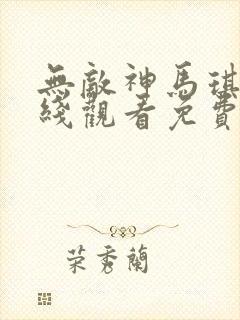 無敵神馬琪
綫觀看免費
荣秀蘭